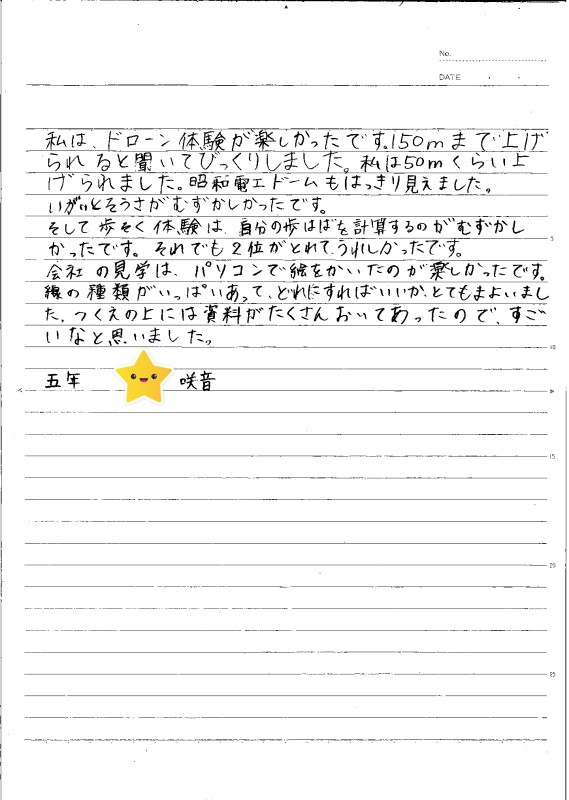 No.
DATE
私は、ドローン体験が楽しかったです。150mまで上げ
られると聞いてびっくりしました。私は50mくらい上
げられました。昭和電工ドームもはっきり見えました。
いがいとそうさがむずかしかったです。
そして歩そく体験は、自分の歩はばを計算するのがむずかし
かったです。それでも2位がとれて、うれしかったです。
会社の見学は、パソコンで絵をかいたのが楽しかったです。
線の種類がいっぱいあって、どれにすればいいか、とてもまよいまし
た。つくえの上には資料がたくさんおいてあったので、すご
いなと思いました。
五年 咲音
5
10
15
20
25